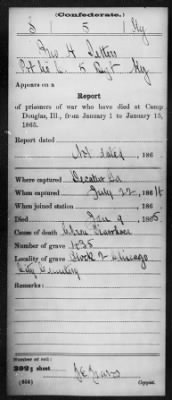 (Confederate.)
S 5 Ky
Geo H
Pvt Co. 5 Regt Ky
Appears on a
Report
of prisoners of war who have died at Camp
Douglas, Ill., from January 1 to January 15,
1865.
Report dated
Not dated, 186
Where captured Decatur Ga
When captured July 22, 186
When joined station , 186
Died Jan 9, 1865
Cause of death Chron Diarrhoea
Number of grave
Locality of grave Block 2 Chicago
City Cemetery
Remarks:
Number of roll:
sheet
Copyist.